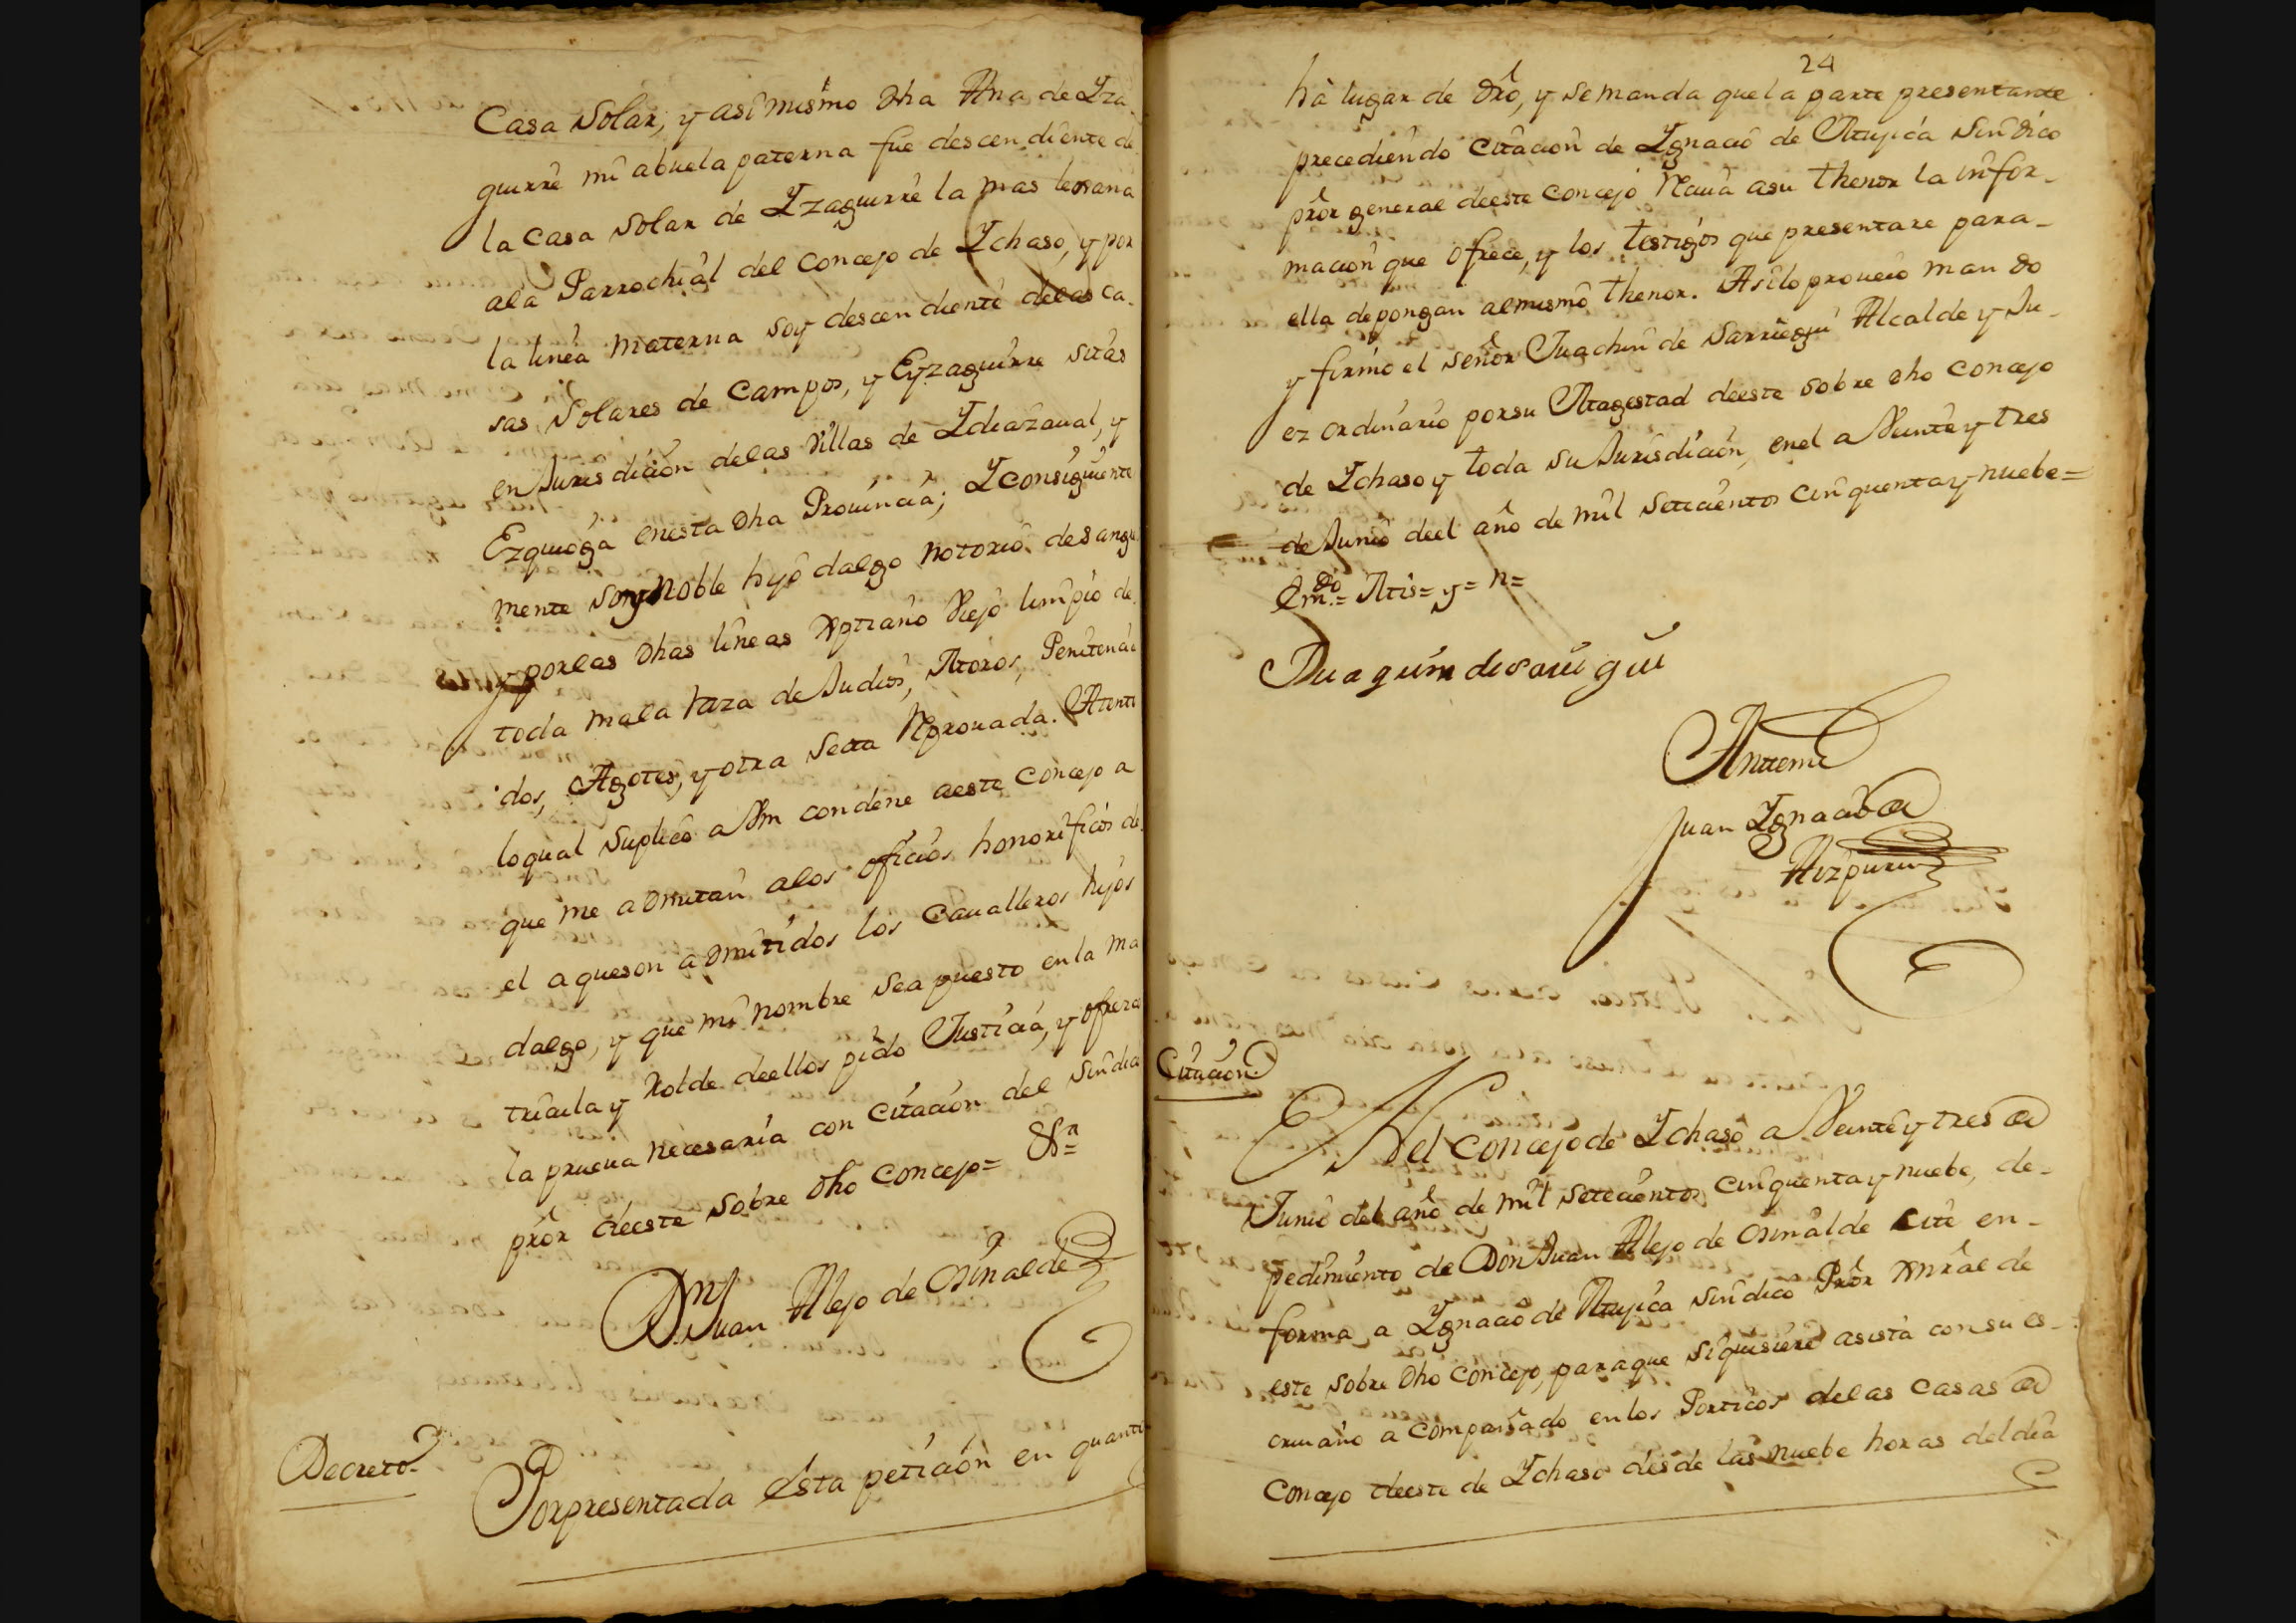 Casa Solar, y asimismo dha Ana de Yza-
guirre mi abuela paterna fue descendiente de
la Casa Solar de Yzaguirre la mas zercana
ala Parrochial del Concejo de Ychaso, y por
la linea materna soy descendiente delas ca-
sas Solares de Campos, y Eyzaguirre sitas
en Jurisdicion delas Villas de Ydiazaual, y
Ezquioga enesta dha Prouincia; Y consiguiente
mente soy Noble hijo dalgo notorio de sangre
y porlas dhas lineas Xptiano Viejo limpio de
toda mala raza de Judios, Moros, Penitencia
dos, Agotes, y otra Secta Reprouada. Atento
loqual Suplico a Vm condene aeste Concejo a
que me admitan alos oficios honorificos de
el aqueson admitidos los Caualleros hijos
dalgo, y que mi nombre sea puesto en la ma
tricula y Rolde deellos pido Justicia, y ofrezco
la prueua necesaria con Citacion del Sindico
pror deeste sobre dho Concejo= Vn=
Dn Juan Alejo de Osinalde
Decreto
Porpresentada esta peticion en quanto
24
hà lugar de dro, y se manda quela parte presentante
precediendo Citacion de Ygnacio de Mujica Sindico
pror general deeste Concejo Reciua asu thenor la infor-
macion que ofrece, y los testigos que presentare para-
ella depongan almismo thenor. Asilo proueio mando
y firmo el señor Juachin de Sarriegui Alcalde y Ju-
ez ordinario porsu Magestad deeste sobre dho Concejo
de Ychaso y toda su Jurisdicion, enel a Veinte y tres
de Junio deel año de mil Setecientos Cinquenta y nuebe=
Emdo.= Mis= y= n=
Juaquin de saRigui
Antemi
Juan Ygnacio de
Aizpuru
Citacion
EN el Concejo de Ychaso a Veinte y tres de
Junio del año de mil setecientos Cinquenta y nuebe, de-
pedimiento de Don Juan Alejo de Osinalde Cite en-
forma a Ygnacio de Mujica Sindico Pror Gnral de
este sobre dho Concejo, paraque siquisiere asista con su es-
criuano acompañado en los Porticos delas Casas de
Concejo deeste de Ychaso desde las nuebe horas deldia